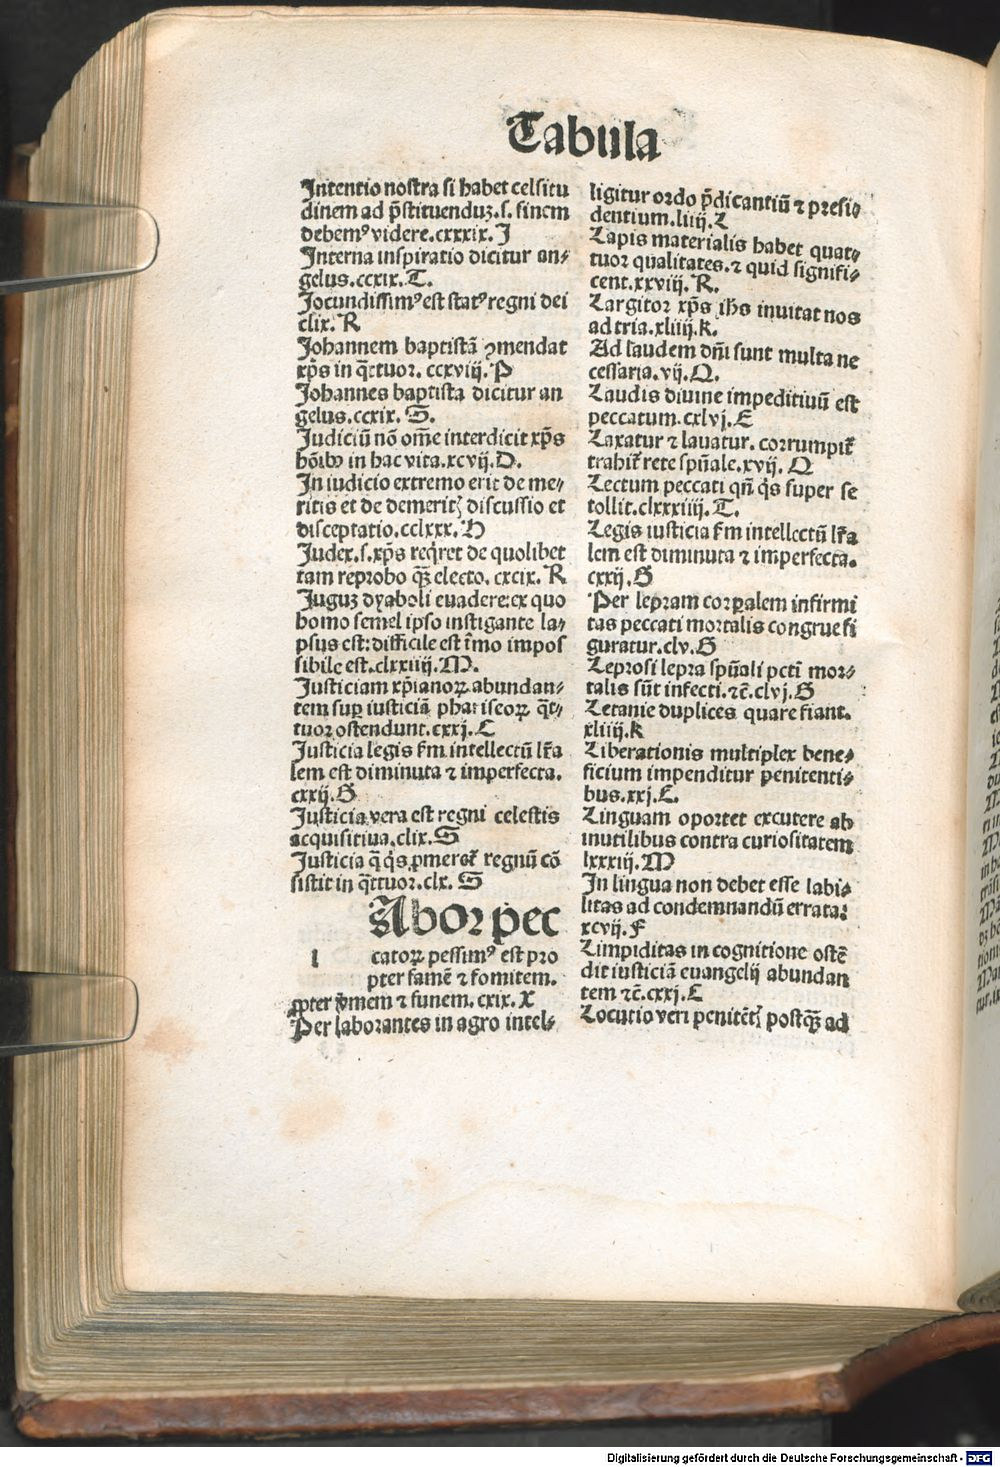 Tabula
Intentio nostra si habet celsitu
dinem ad p̄stituenduʒ.s. finem
debemꝰ videre.cxxxix. J
Interna inspiratio dicitur an⸗
gelus.ccxix.T.
Jocundissimꝰ est statꝰ regni dei
clix. R
Johannem baptistā ꝯmendat
xp̄s in q̄ttuor. ccxviij. P
Johannes baptista dicitur an
gelus.ccxix. S.
Judiciū nō om̄e interdicit xp̄s
hōibꝰ in hac vita.xcvij.D.
In iudicio extremo erit de me⸗
ritis et de demeritꝭ discussio et
disceptatio.cclxxx. H
Judex.s.xp̄s reqͥret de quolibet
tam reprobo qʒ̄ electo. cxcix. R
Juguʒ dyaboli euadere:ex quo
homo semel ipso instigante la⸗
psus est: difficile est īmo impos
sibile est.clxxiiij.M.
Justiciam xp̄ianoꝝ abundan⸗
tem suꝑ iusticiā phariseoꝝ q̄t⸗
tuor ostendunt.cxxj. C
Justicia legis ẜm intellectū lr̄a
lem est diminuta ⁊ imperfecta.
cxxij. G
Justicia vera est regni celestis
acquisitiua.clix. S
Justicia q̄ qͥs ꝓmeret̄ regnū cō
sistit in q̄ttuor.clx. S
Abor pec
l catoꝝ pessimꝰ est pro
pter famē ⁊ fomitem.
ꝓpter v̄mem ⁊ funem. cxix. X
Per laborantes in agro intel⸗
ligitur ordo p̄dicantiū ⁊ presi⸗
dentium.liiij. L
Lapis materialis habet quat⸗
tuor qualitates.⁊ quid signifi⸗
cent.xxviij. R.
Largitor xp̄s ih̄s inuitat nos
ad tria.xliiij.k.
Ad laudem dn̄i sunt multa ne
cessaria.vij. Q.
Laudis diuine impeditiuū est
peccatum.cxlvj. E
Laxatur ⁊ lauatur. corrumpit̄
trahit̄ rete spūale.xvij. Q
Lectum peccati qn̄ qͥs super se
tollit.clxxxiiij. T.
Legis iusticia ẜm intellectū lr̄a
lem est diminuta ⁊ imperfecta.
cxxij. G
Per lepram corꝑalem infirmi
tas peccati mortalis congrue fi
guratur.clv. G
Leprosi lepra spūali pcti mor⸗
talis sūt infecti.⁊c̄.clvj. G
Letanie duplices quare fiant.
xliiij.k
Liberationis multiplex bene⸗
ficium impenditur penitenti⸗
bus.xxj. L.
Linguam oportet excutere ab
inutilibus contra curiositatem
lxxxiij. M
In lingua non debet esse labi⸗
litas ad condemnandū errata:
xcvij. F
Limpiditas in cognitione ostē
dit iusticiā euangelij abundan
tem ⁊c̄.cxxj. C
Locutio veri penitētꝭ postqʒ̄ ad
Digitalisierung gefördert durch die Deutsche Forschungsgemeinschaft - DFG